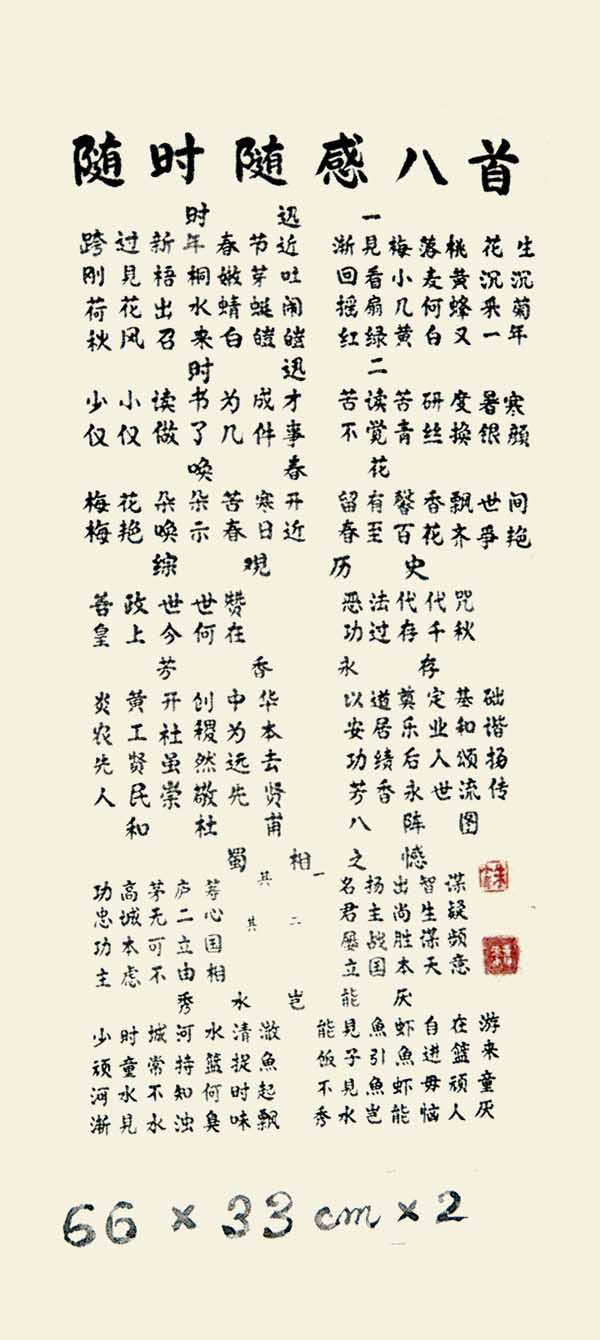 随时随感八首
时迅一
跨过新年春节近 渐见梅落桃花生
刚見梧桐嫩芽吐 回看小麦黄沉沉
荷花出水蜻蜓闹 摇扇几何蜂采菊
秋风召来白皑皑 红绿黄白又一年
时迅二
少小读书为成才 苦读苦研度暑寒
仅仅做了几件事 不觉青丝换银颜
唤春花
梅花朵朵苦寒开 留有馨香飘世间
梅艳唤示春日近 春至百花齐争艳
综观历史
善政世世赞 恶法代代咒
皇上今何在 功过存千秋
芳香永存
炎黄开创中华 以道奠定基础
农工社稷为本 安居乐业和谐
先贤虽然远去 功绩后人颂扬
人民崇敬先贤 芳香永世流传
和社甫八阵图
蜀相之憾
其一
功高茅庐筹 名扬出智谋
忠城无二心 君主尚生疑
其二
功本可立国 屡战胜谋频
主虑不由相 立国本天意
秀水岂能厌
少时城河水清澈 能見魚虾自在游
顽童常持篮捉魚 饭子引魚进篮来
河水不知何时起 不見魚虾毋顽童
渐見水浊臭味飘 秀水岂能恼人厌
66×33cm×2